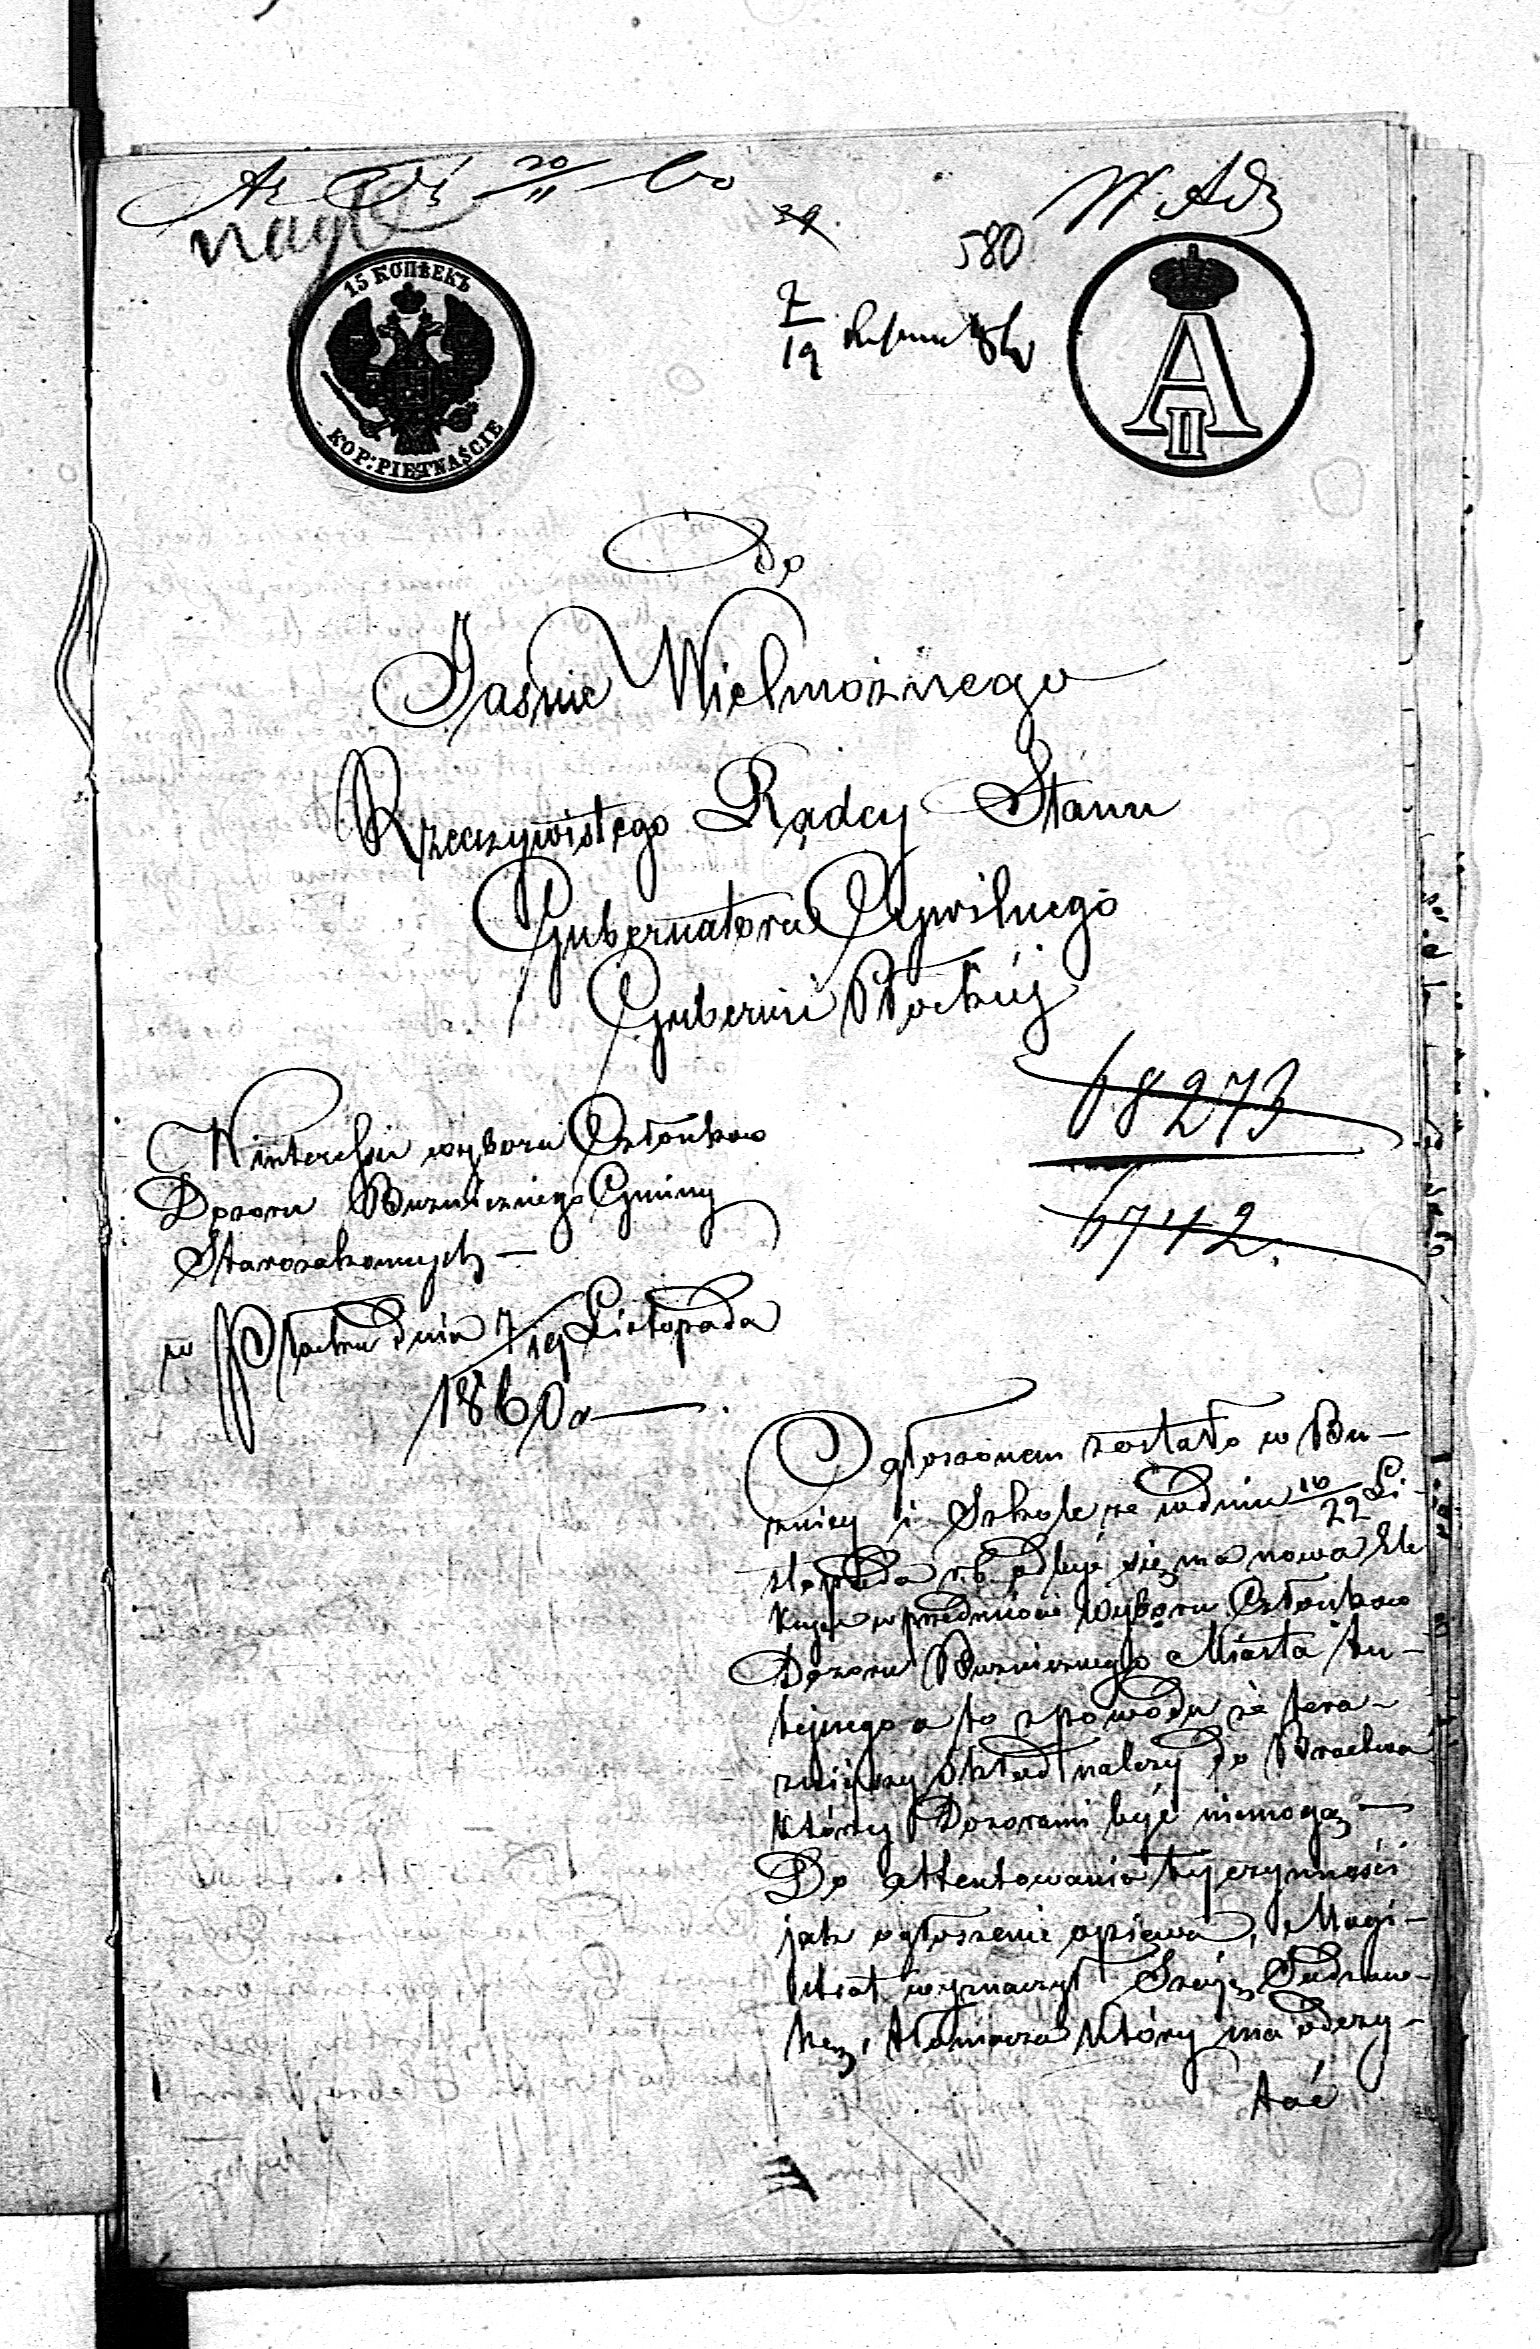 20/11 60
nagle
39.
580
W. Adz
7/19
15 КОПѢЕКЪ
KOP: PIĘTNAŚCIE
A II
Do
Jaśnie Wielmożnego
Rzeczywistego Radcy Stanu
Gubernatora Cywilnego
Gubernii Płockiej
68273
6742.
W interesie wyboru Członków
Dozoru Bużnicznego Gminy
Starozakonnych —
w Płocku dnia 7/19 Listopada
1860 r —.
Ogłoszonem zostało w Bu-
znicy i Szkole że w dniu 10/22 Li-
stopada r.b. odbyć się ma nowa Ele
kcyja w przedmiocie wyboru Członków
Dozoru Bużnicznego Miasta tu-
tejszego a to z powodu że tera-
zniejszy skład należy do Bractwa
którzy Dozorami być niemogą —
Do attentowania tej czynności
jak ogłoszenie opiewa, Magi-
strat wyznaczył Szeję
tłomacza który ma odczy-
tać